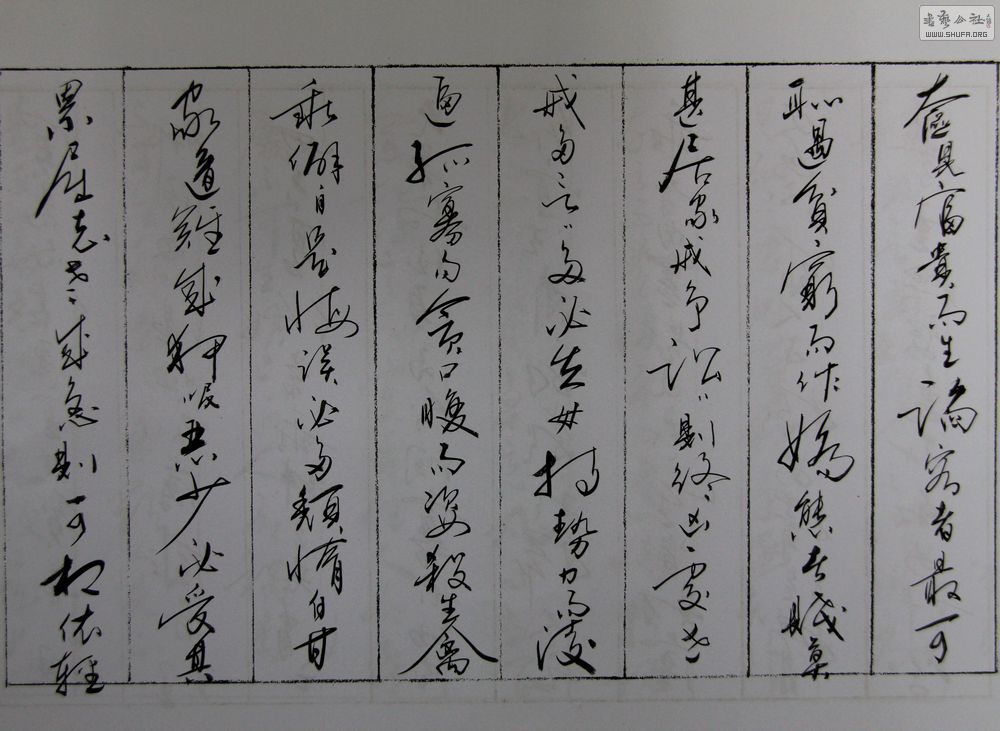 奩見富貴而生謟容者最可
恥遇貧窮而作嬌態者賤莫
甚居家戒争訟〃則終凶處世
戒多言〃多必失毋持勢力而凌
逼孤寡勿貪口腹而姿殺生禽
乖僻自是悔误必多頹惰自甘
家道難成狎昵恶少必受其
累屈志老成急則可相依輕
书艺公社
WWW.SHUFA.ORG